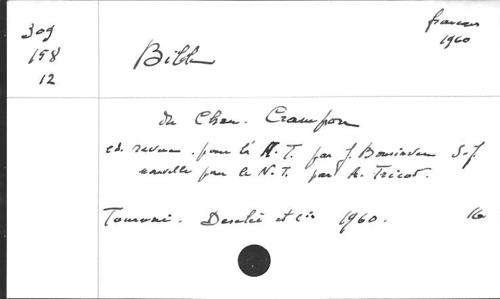 309
158
12
français
1960
Bible
du Chan. Crampon
éd. revue pour l'A.T. par J. Bonsirven S.J.
nouvelle pour le N.T. par A. Tricot.
Tournai. Desclée et Cie 1960. 16